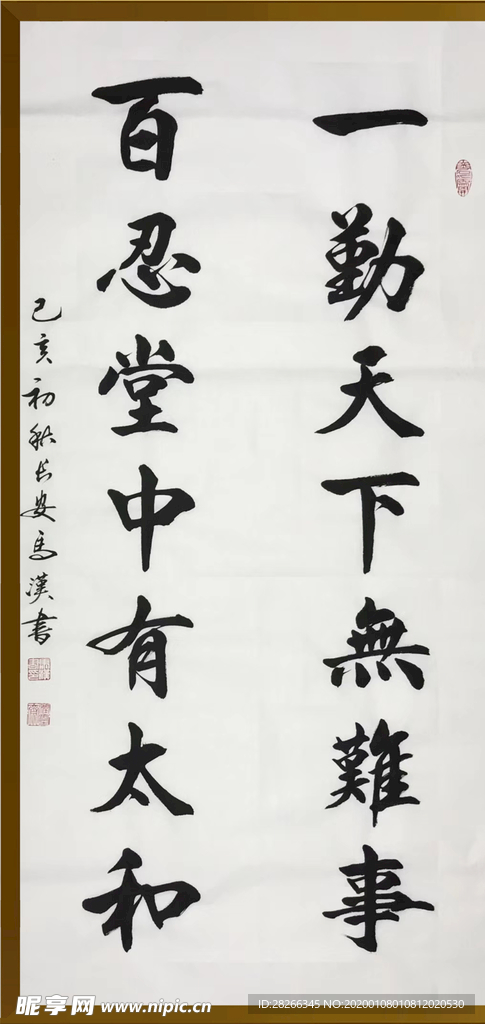 一勤天下無難事
百忍堂中有太和
己亥初秋長安馬漢書
昵享网 www.nipic.cn
ID:28266345 NO:20200108010812020530